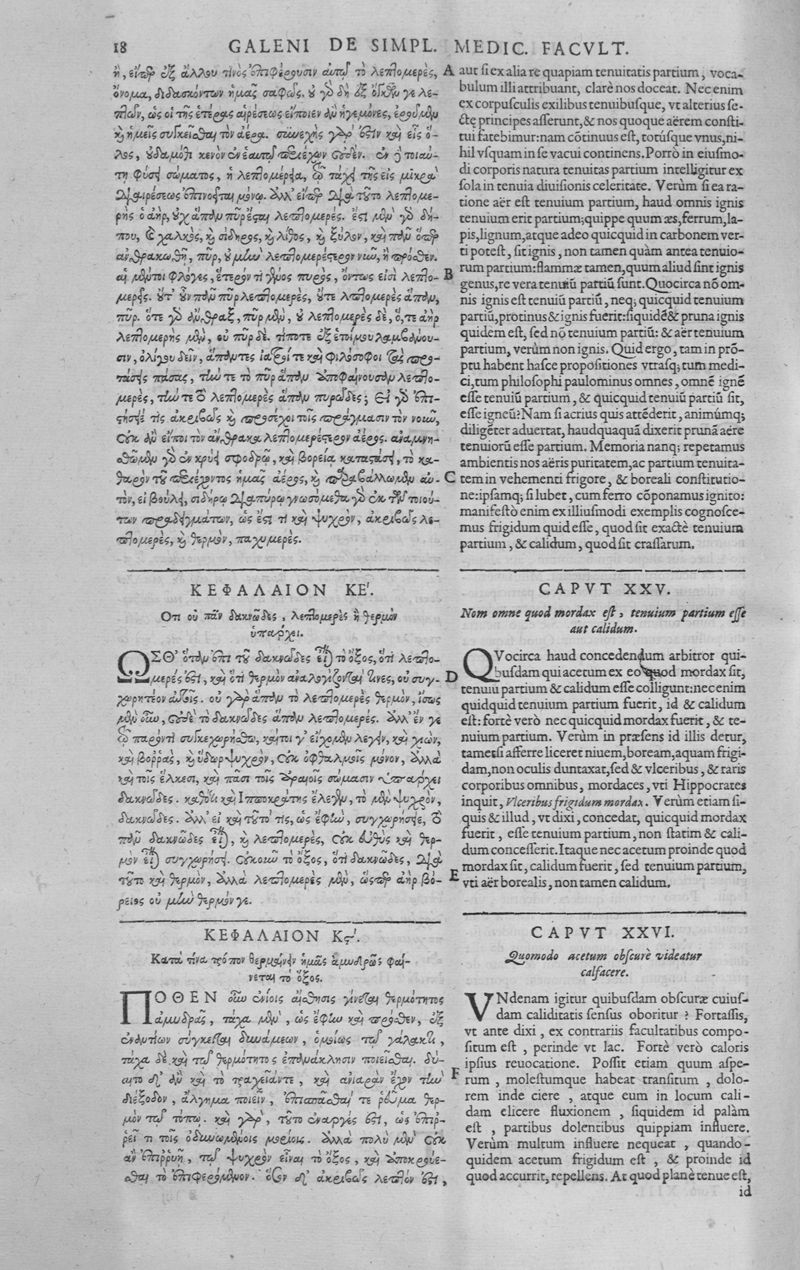 18 GALENI DE SIMPL. MEDIC. FACVLT.
ἢ, εἴπερ ἐξ ἄλλου τινὸς ἐπιφέρουσιν αὐτῷ τὸ λεπτομερὲς,
ὄνομα, διδασκόντων ἡμᾶς σαφῶς. οὐ γὸ δὴ ἐξ ὄγκων γε λε-
πτῶν, ὡς οἱ τῆς ἑτέρας αἱρέσεως εἴποιεν ἂν ἡγεμόνες, ἐροῦμεν
καὶ ἡμεῖς συγκεῖσθαι τὸν ἀέρα. συνεχὴς γάρ ἐστιν καὶ εἷς ὅ-
λος, οὐδαμόθι κενὸν ἐν ἑαυτῷ περιέχων οὐδέν. ἐν ᾗ τοιαύ-
τῃ φύσει σώματος, ἡ λεπτομέρεια, τῷ τάχει τῆς εἰς μικρὰ
διαιρέσεως ἐπινοεῖται μόνῳ. ἀλλ' εἴπερ διὰ τοῦτο λεπτομε-
ρὴς ὁ ἀὴρ, οὐχ ἅπαν πῦρ ἔσται λεπτομερές. ἔστι μὲν γὸ δή-
που, καὶ χαλκὸς, καὶ σίδηρος, καὶ λίθος, καὶ ξύλον, καὶ πᾶν ὅπερ
ἀνθρακωθῇ, πῦρ, οὐ μὴν λεπτομερέστερον νῦν, ἢ πρόσθεν.
αἱ μέντοι φλόγες, ἕτερόν τι γένος πυρὸς, ὄντως εἰσὶ λεπτο-
μερεῖς. οὔτ' οὖν πᾶν πῦρ λεπτομερὲς, οὔτε λεπτομερὲς ἅπαν,
πῦρ. ὅτε γὸ ἄνθραξ, πῦρ μὲν, οὐ λεπτομερὲς δὲ, ὅ, τε ἀὴρ
λεπτομερὴς μὲν, οὐ πῦρ δέ. τί ποτε ἐξ ἑτοίμου λαμβάνου-
σιν, ὀλίγου δεῖν, ἅπαντες ἰατροί τε καὶ φιλόσοφοι τὰς προ-
τάσεις πάσας, τήν τε τὸ πῦρ ἅπαν ἀποφαίνουσαν λεπτο-
μερὲς, τήν τε τὸ λεπτομερὲς ἅπαν πυρῶδες; εἰ γὸ ἐπι-
στήσειέ τις ἀκριβῶς καὶ προσέχοι τοῖς πράγμασιν τὸν νοῦν,
οὐκ ἂν εἴποι τὸν ἄνθρακα λεπτομερέστερον ἀέρος. ἀναμνη-
σθῶμεν γὸ ἐν κρύει σφοδρῷ, καὶ βορείᾳ καταστάσει, τὸ κα-
θαρὸν τοῦ περιέχοντος ἡμᾶς ἀέρος, καὶ παραβάλλωμεν αὐ-
τὸν, εἰ βούλει, σιδήρῳ διαπύρῳ γνωσόμεθα γὸ ἐκ τῶν τοιού-
των παραδειγμάτων, ὡς ἔστι τι καὶ ψυχρὸν, ἀκριβῶς λε-
πτομερὲς, καὶ θερμὸν, παχυμερές.
ΚΕΦΑΛΑΙΟΝ ΚΕ'.
Οτι οὐ πᾶν δακνῶδες, λεπτομερὲς ἢ θερμὸν
ὑπάρχει.
ΩΣΘ' ὅταν ἐπὶ τοῦ δακνῶδες εἶναι τὸ ὄξος, ὅτι λεπτο-
μερές ἐστι, καὶ ὅτι θερμὸν ἀναλογίζονταί τινες, οὐ συγ-
χωρητέον αὐτοῖς. οὐ γὰρ ἅπαν τὸ λεπτομερὲς θερμὸν, ἴσως
μὲν οὖν, οὐδὲ τὸ δακνῶδες ἅπαν λεπτομερές. ἀλλ' ἔν γε
τῷ παρόντι συγκεχωρήσθω, καίτοι γ' εἴχομεν λέγειν, καὶ χιὼν,
καὶ βοῤῥᾶς, καὶ ὕδωρ ψυχρὸν, οὐκ ὀφθαλμοῖς μόνον, ἀλλὰ
καὶ τοῖς ἕλκεσι, καὶ πᾶσι τοῖς ἀραιοῖς σώμασιν ὑπάρχει
δακνῶδες. καθότι καὶ Ἱπποκράτης ἔλεγεν, τὸ μὲν ψυχρὸν,
δακνῶδες. ἀλλ' εἰ καὶ τοῦτό τις, ὡς ἔφην, συγχωρήσειε, τὸ
πᾶν δακνῶδες εἶναι, καὶ λεπτομερὲς, οὐκ εὐθὺς καὶ θερ-
μὸν εἶναι συγχωρήσει. οὔκουν τὸ ὄξος, ὅτι δακνῶδες, διὰ
τοῦτο καὶ θερμὸν, ἀλλὰ λεπτομερὲς μὲν, ὥσπερ ἀὴρ βό-
ρειος οὐ μὴν θερμόν γε.
ΚΕΦΑΛΑΙΟΝ Κϛ'.
Κατὰ τίνα τρόπον θερμαίνειν ἡμᾶς ἀμυδρῶς φαί-
νεται τὸ ὄξος.
ΠΟΘΕΝ οὖν ἐνίοις αἴσθησις γίνεται θερμότητος
ἀμυδρᾶς, τάχα μὲν, ὡς ἔφην καὶ πρόσθεν, ἐξ
ἐναντίων σύγκειται δυνάμεων, ὁμοίως τῷ γάλακτι,
τάχα δὲ καὶ τῷ θερμότητος ἐπανάκλησιν ποιεῖσθαι. δύ-
αιτο δ' ἂν καὶ τὸ τραχεῖάν τε, καὶ ἀνιαρὰν ἔχον τὴν
διέξοδον, ἄλγημα ποιεῖν, ἐπισπᾶσθαί τε ῥεῦμα θερ-
μὸν τῷ τόπῳ. καὶ γὰρ, τοῦτο ἐναργές ἐστι, ὡς ἐπιῤ-
ῥεῖ τι τοῖς ὀδυνωμένοις μορίοις. ἀλλὰ πολὺ μὲν οὐκ
ἂν ἐπιῤῥυῇ, τῷ ψυχρὸν εἶναι τὸ ὄξος, καὶ ἀποκρούε-
σθαι τὸ ἐπιφερόμενον. ὅσον δ' ἀκριβῶς λεπτόν ἐστι,
A aut si ex alia re quapiam tenuitatis partium, voca-
bulum illi attribuant, clarè nos doceat. Nec enim
ex corpusculis exilibus tenuibusque, vt alterius se-
ctę principes asserunt, & nos quoque aërem consti-
tui fatebimur: nam cōtinuus est, totúsque vnus, ni-
hil vsquam in se vacui continens. Porrò in eiusmo-
di corporis natura tenuitas partium intelligitur ex
sola in tenuia diuisionis celeritate. Verùm si ea ra-
tione aër est tenuium partium, haud omnis ignis
tenuium erit partium; quippe quum æs, ferrum, la-
pis, lignum, atque adeo quicquid in carbonem ver-
ti potest, sit ignis, non tamen quàm antea tenuio-
B rum partium: flammæ tamen, quum aliud sint ignis
genus, re vera tenuiū partiū sunt. Quocirca nō om-
nis ignis est tenuiū partiū, neq; quicquid tenuium
partiū, protinus & ignis fuerit: siquidē & pruna ignis
quidem est, sed nō tenuium partiū: & aër tenuium
partium, verùm non ignis. Quid ergo, tam in prō-
ptu habent hasce propositiones vtrasq; tum medi-
ci, tum philosophi paulominus omnes, omnē ignē
esse tenuiū partium, & quicquid tenuiū partiū sit,
esse igneū? Nam si acrius quis attēderit, animúmq;
diligēter aduertat, haudquaquā dixerit prunā aëre
tenuiorū esse partium. Memoria nanq; repetamus
ambientis nos aëris puritatem, ac partium tenuita-
C tem in vehementi frigore, & boreali constitutio-
ne: ipsamq; si lubet, cum ferro cōponamus ignito:
manifestò enim ex illiusmodi exemplis cognosce-
mus frigidum quid esse, quod sit exactè tenuium
partium, & calidum, quod sit crassarum.
CAPVT XXV.
Nom omne quod mordax est, tenuium partium esse
aut calidum.
QVocirca haud concedendum arbitror qui-
busdam qui acetum ex eo quod mordax sit,
D tenuiū partium & calidum esse colligunt: nec enim
quidquid tenuium partium fuerit, id & calidum
est: fortè verò nec quicquid mordax fuerit, & te-
nuium partium. Verùm in præsens id illis detur,
tametsi afferre liceret niuem, boream, aquam frigi-
dam, non oculis duntaxat, sed & vlceribus, & raris
corporibus omnibus, mordaces, vti Hippocrates
inquit, Vlceribus frigidum mordax. Verùm etiam si-
quis & illud, vt dixi, concedat, quicquid mordax
fuerit, esse tenuium partium, non statim & cali-
dum concesserit. Itaque nec acetum proinde quod
E mordax sit, calidum fuerit, sed tenuium partium,
vti aër borealis, non tamen calidum.
CAPVT XXVI.
Quomodo acetum obscurè videatur
calfacere.
VNdenam igitur quibusdam obscuræ cuius-
dam caliditatis sensus oboritur? Fortassis,
vt ante dixi, ex contrariis facultatibus compo-
situm est, perinde vt lac. Fortè verò caloris
ipsius reuocatione. Possit etiam quum aspe-
F rum, molestumque habeat transitum, dolo-
rem inde ciere, atque eum in locum cali-
dam elicere fluxionem, siquidem id palàm
est, partibus dolentibus quippiam influere.
Verùm multum influere nequeat, quando-
quidem acetum frigidum est, & proinde id
quod accurrit, repellens. At quod planè tenue est,
id